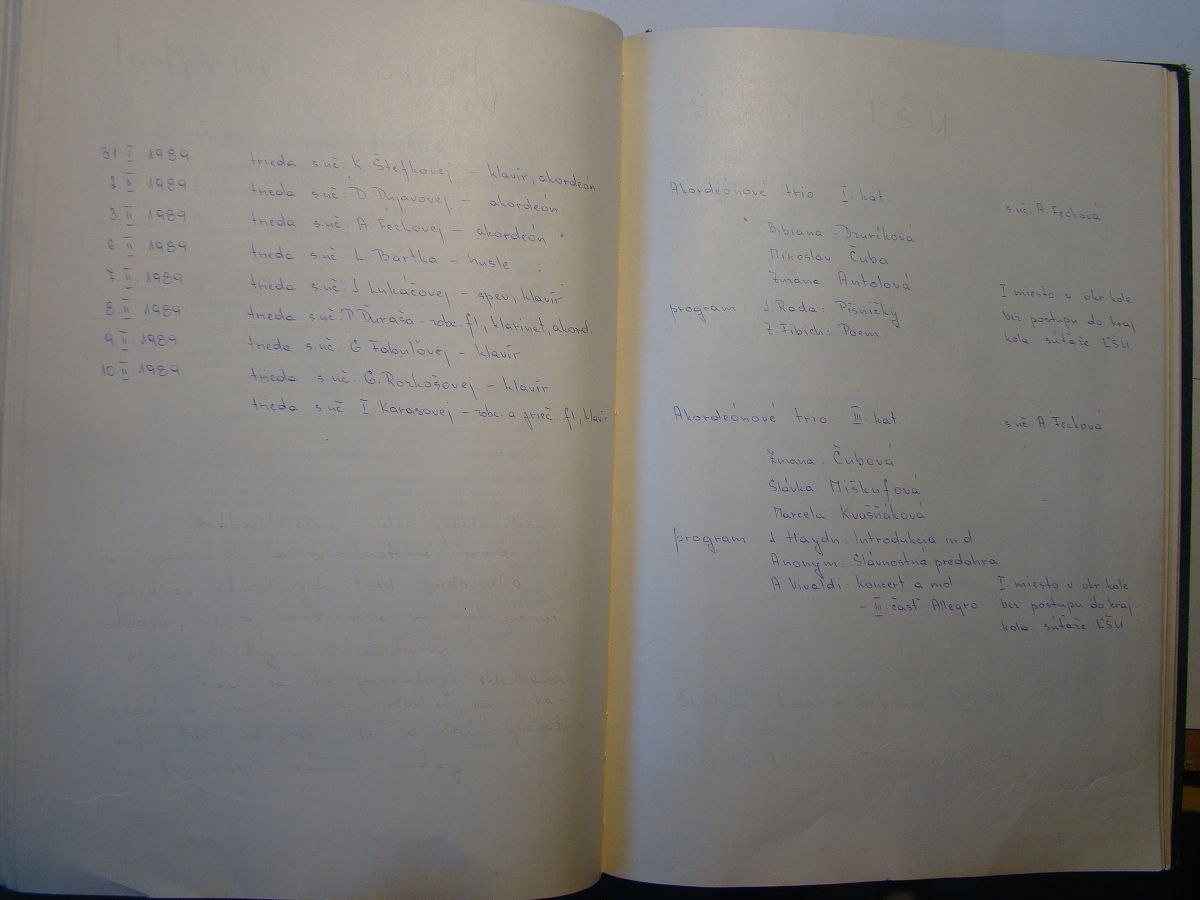 Interné
31. I. 1989 trieda s.uč. K Štefkovej – klavír, akordeón
2 II 1989 trieda s.uč. D Dujavovej – akordeón
3. II. 1989 trieda s.uč. A Feckovej – akordeón
6. II 1989 trieda s.uč. L. Bartka – husle
7. II. 1989 trieda s.uč. J Lukáčovej – spev, klavír
8. II 1989 trieda s.uč. P. Ďuraša – zobc. fl., klarinet, akord.
9 II 1989 trieda s.uč. G Fabuľovej – klavír
10. II. 1989 trieda s.uč. G. Rozkošovej – klavír
trieda s.uč. I Karasovej – zobc. a prieč. fl, klavír
ĽŠU
Akordeónové trio I. kat.
s.uč. A Fecková
Bibiana Dzuríková
Miroslav Čuba
Zuzana Antolová
program: J. Rada: Písničky
Z. Fibich: Poem
I miesto v okr kole
bez postupu do kraj
kola súťaže ĽŠU
Akordeónové trio III. kat.
s.uč A Fecková
Zuzana Čubová
Slávka Miškufová
Marcela Kvašňáková
program: J. Haydn: Introdukcia in d
Anonym: Slávnostná predohra
A. Vivaldi: Koncert a mol
- III časť Allegro
I. miesto v okr kole
bez postupu do kraj
kola súťaže ĽŠU